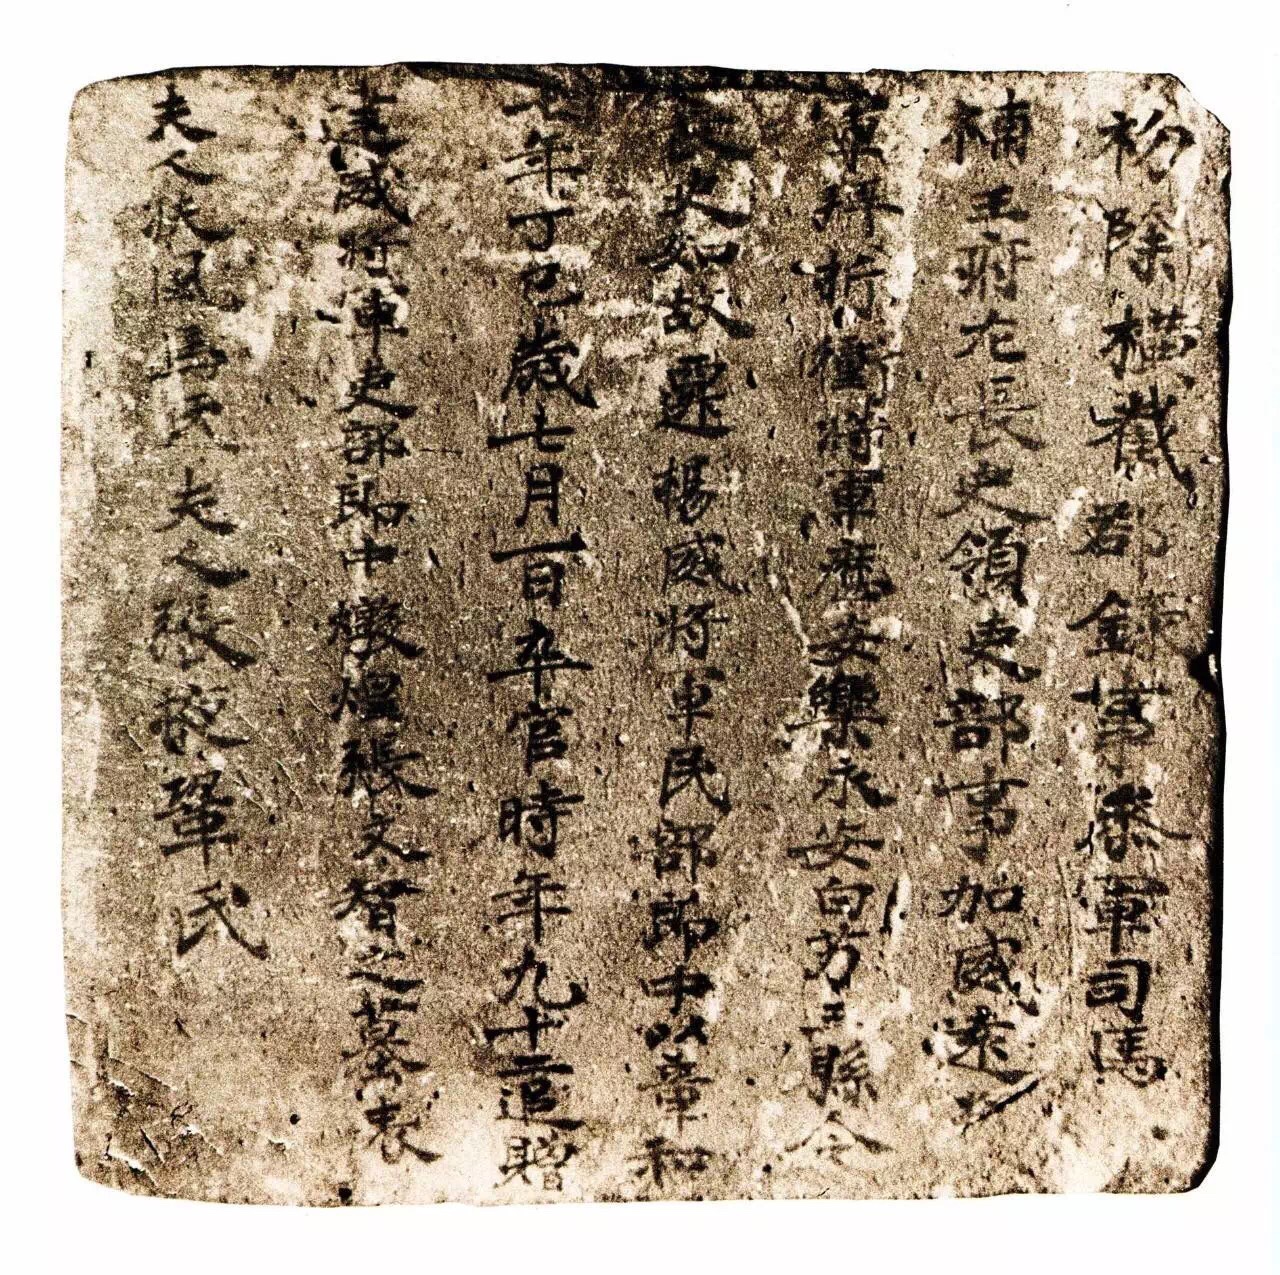 初除橫截郡錄事參軍司馬
補王府左長史領吏部事加威遠將
軍拜折衝將軍歷安樂永安白芀三縣令
長史如故遷楊威將軍民部郎中以章和
七年丁巳歲七月一日卒官時年九十二追贈
建威將軍吏部郎中燉煌張文智之墓表
夫人扶風馬氏夫人張掖鞏氏